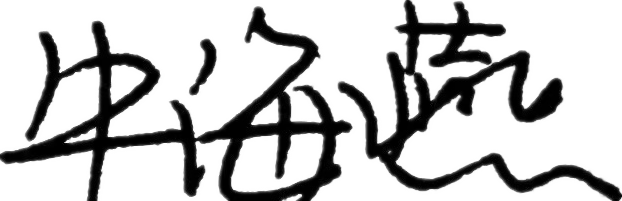 牛海燕